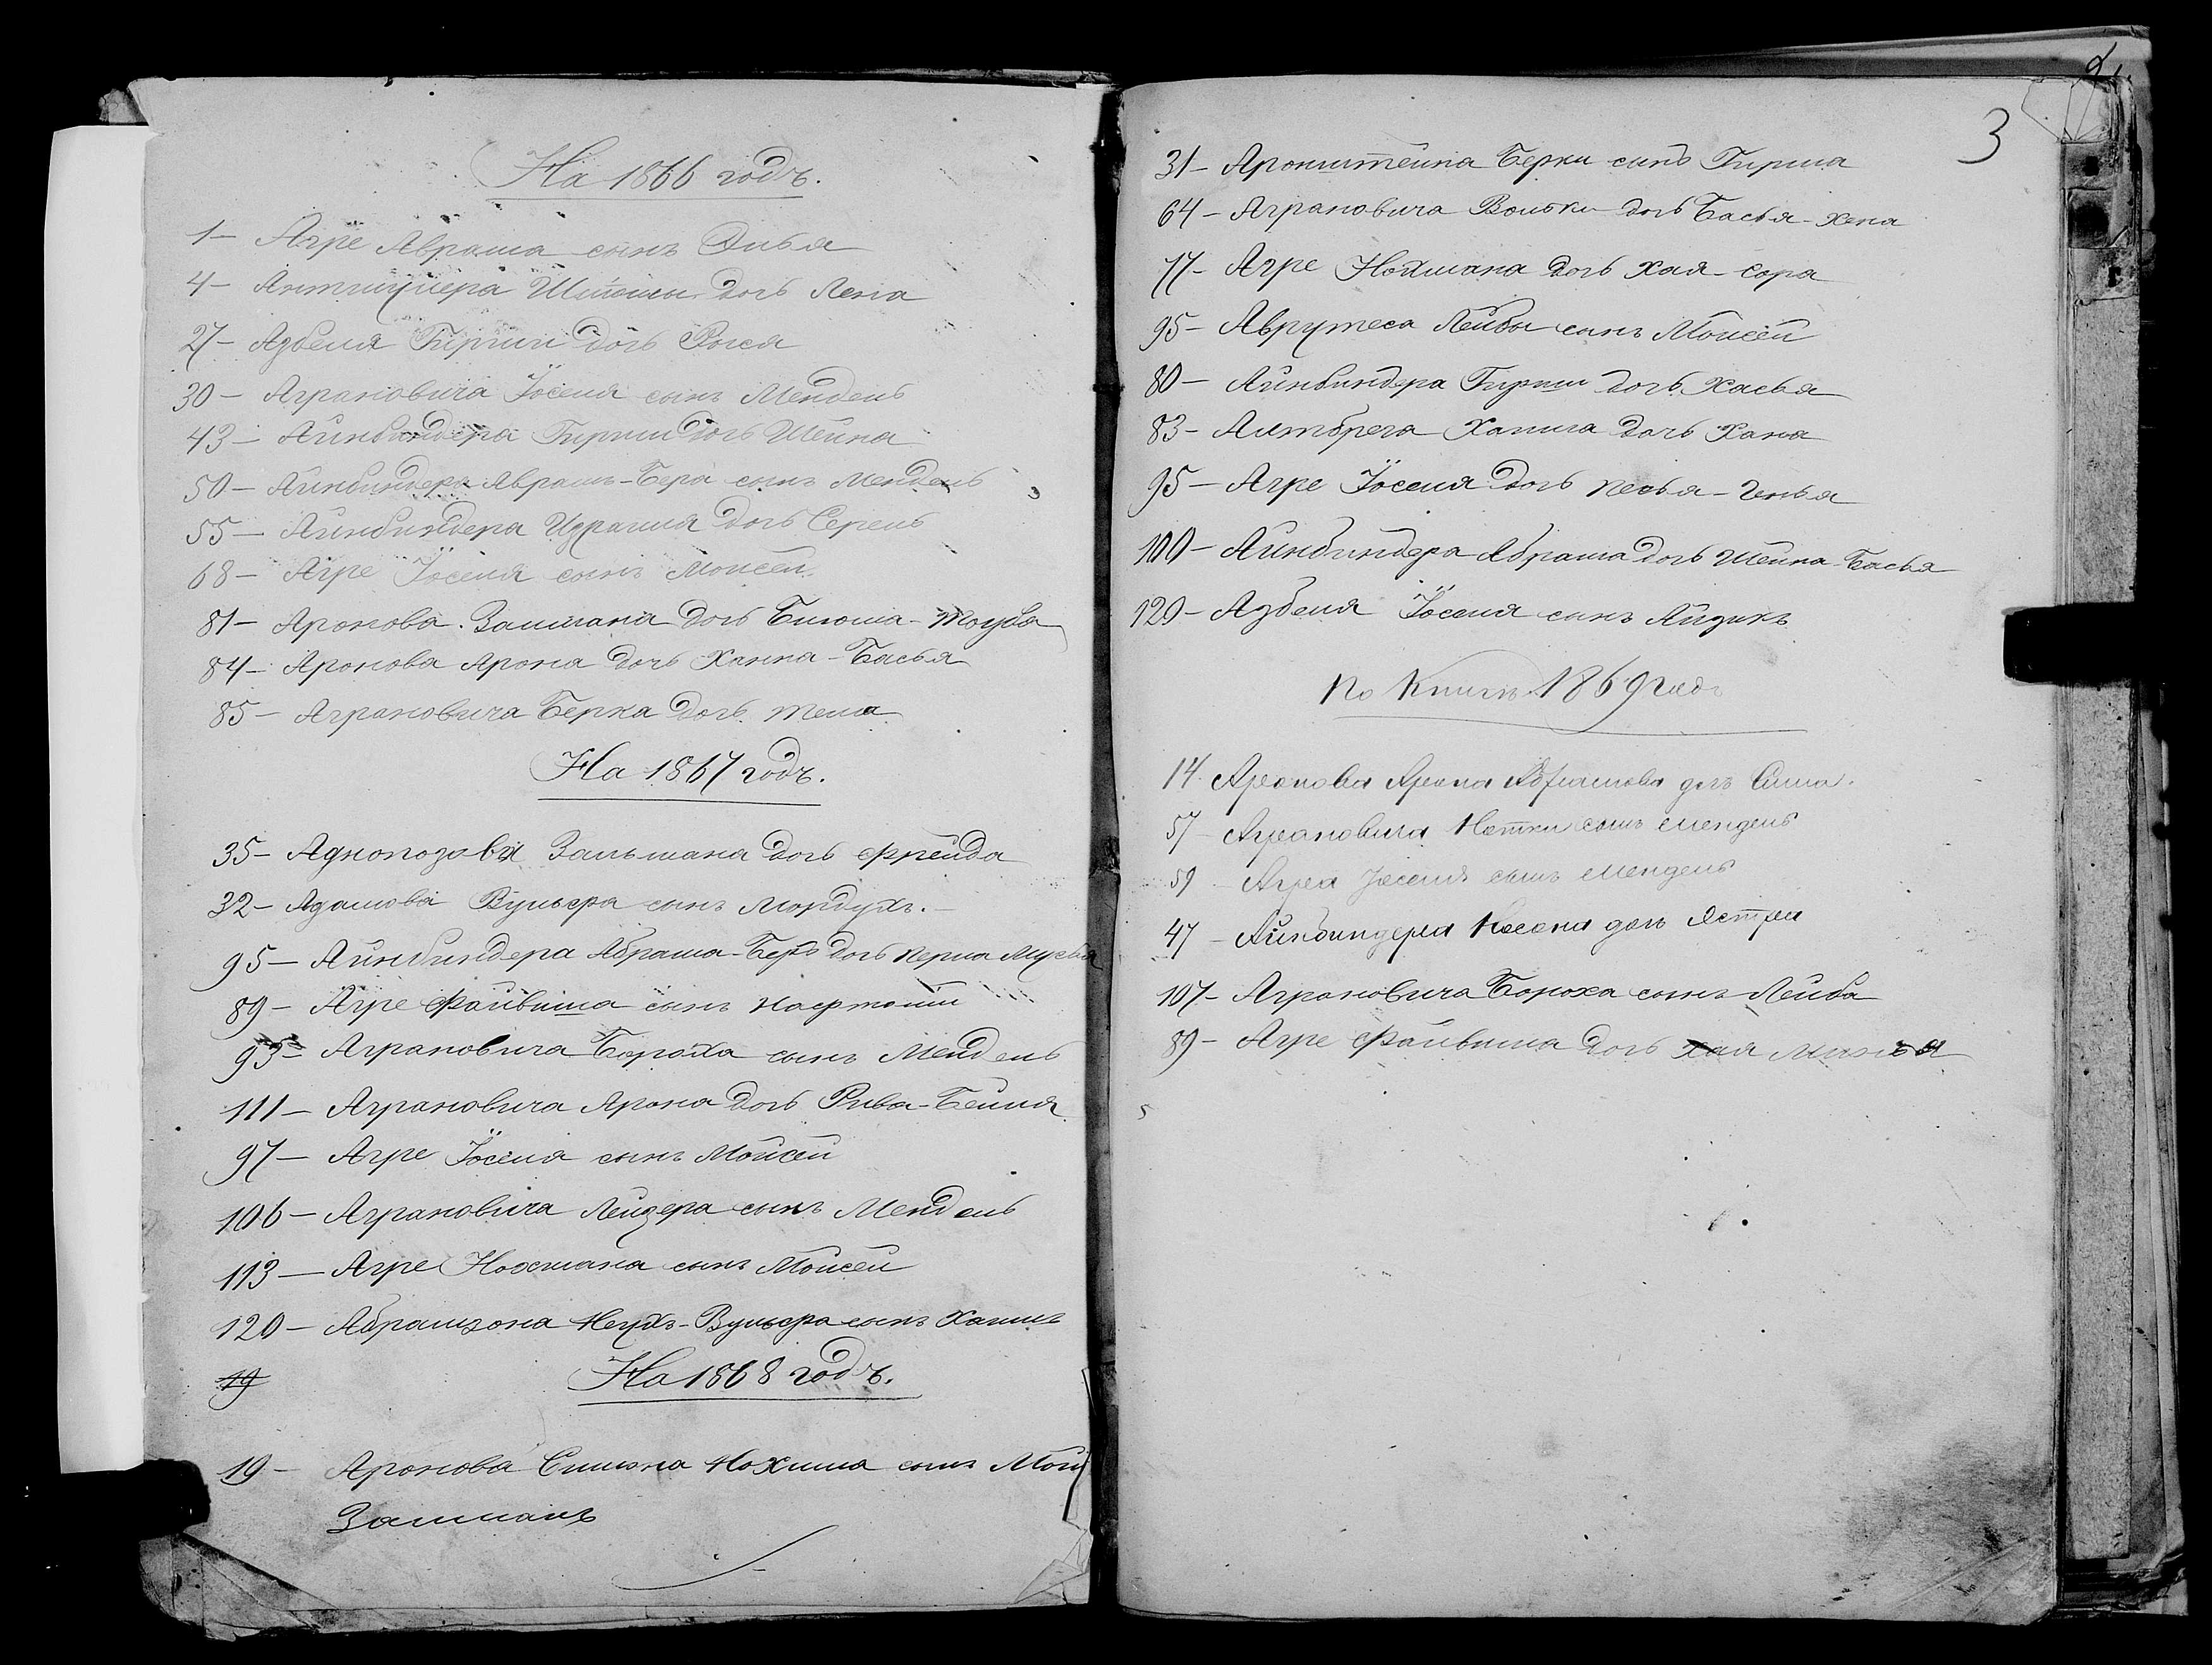 На 1866 годъ.
1 – Агре Абрама сынъ Элья
4 – Шлiомы дочь Лена
27 – Азбеля Гирши дочь Рося
30 – Аграновича Iоселя сынъ Мендель
43 – Айнбиндера Гирши дочь Шейна
50 – Айнбиндера Абрамъ-Бера сынъ Мендель
55 – Айнбиндера Израиля дочь Серель
68 – Агре Iоселя сынъ Мойсей
81 – Аронова Залмана дочь Блюма-
84 – Аронова Арона дочь Ханна-Басья
85 – Аграновича Берка дочь
На 1867 годъ.
35 – Аднопозова Зальмана дочь Фрейда
32 – Адамова Вульфа сынъ Мордухъ. –
95 – Айнбиндера Абрама-Бера дочь Перла Мусья
89 – Агре Файвиша сынъ Нафтоли
93 – Аграновича Бороха сынъ Мендель
111 – Аграновича Арона дочь Рива-Бейля
97 – Агре Iоселя сынъ Мойсей
106 – Аграновича Лейзера сынъ Мендель
113 – Агре Нохмана сынъ Мойсей
120 – Абрамзона Неухъ-Вульфа сынъ Хаимъ
19
На 1868 годъ.
19 – Аронова Симона Нохима сынъ
Залманъ
2
3
31 – Аронштейна Берки сынъ Гирша
64 – Аграновича Вольки дочь Басья-Хена
77 – Агре Нохмана дочь Хая-Сора
95 – Аврутеса Лейбы сынъ Мойсей
80 – Айнбиндера Гирши дочь Хасья
83 – Хаима дочь Хана
95 – Агре Iоселя дочь Песья-Генья
100 – Айнбиндера Абрама дочь Шейна-Басья
120 – Азбеля Iоселя сынъ Айзикъ
По книгѣ 1869 года
14. Аронова Арона Абрамова дочь Сима.
57 – Аграновича Нотки сынъ Мендель
59 – Агре Iоселя сынъ Мендель
47 – Айнбиндера Носона дочь Эстра
107 – Аграновича Бороха сынъ Лейба
89 – Агре Файвиша дочь Хая